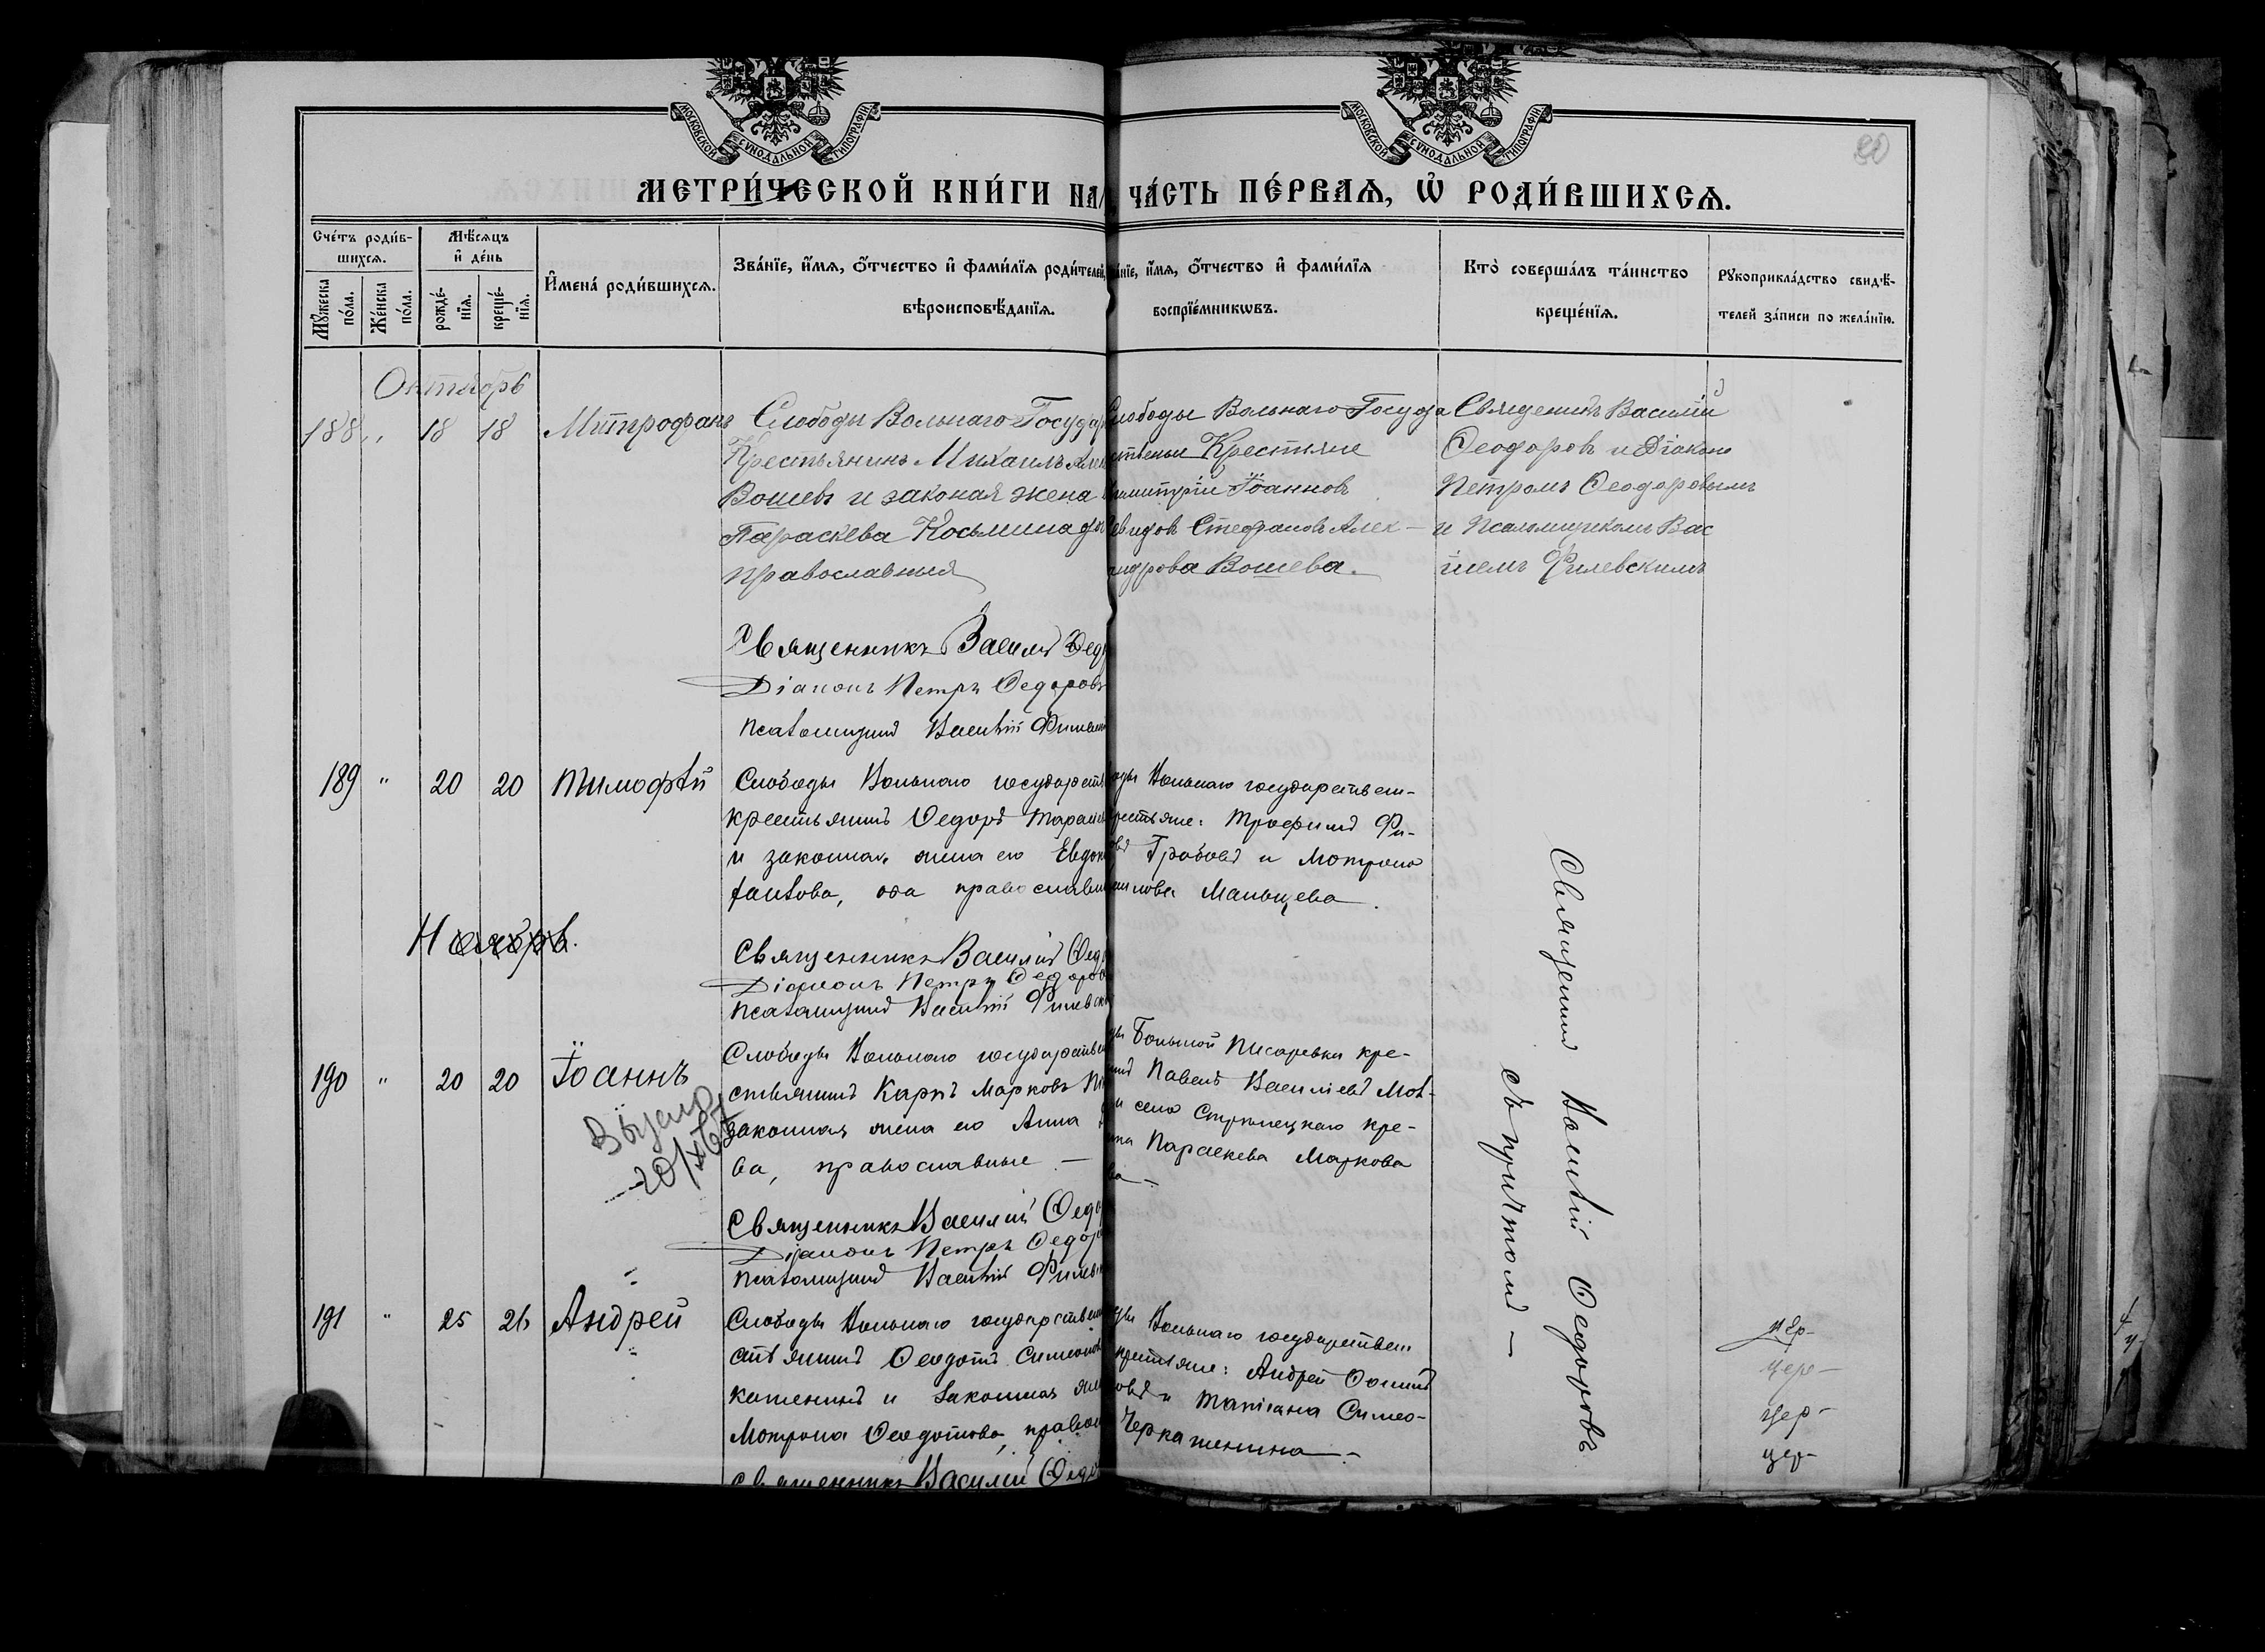 МОСКОВСКОЙ СУНОДАЛЬНОЙ ТИПОГРАФІИ
МОСКОВСКОЙ СУНОДАЛЬНОЙ ТИПОГРАФІИ
80
МЕТРИ́ЧЕСКОЙ КНИ́ГИ НА
ЧА́СТЬ ПЕ́РВАѦ, Ѡ РОДИ́ВШИХСѦ.
Сче́тъ роди́в-
шихсѧ.
Мѣ́сѧцъ
и҆ де́нь
Мꙋ́жеска
по́ла.
Же́нска
по́ла.
рожде́-
нїѧ.
креще́-
нїѧ.
И҆мена̀ роди́вшихсѧ.
Зва́нїе, и҆́мѧ, ѻ҆́тчество и҆ фами́лїѧ роди́телей,
вѣроисповѣ́данїѧ.
и҆́мѧ, ѻ҆́тчество и҆ фами́лїѧ
воспрїе́мникѡвъ.
Кто̀ соверша́лъ та́инство
креще́нїѧ.
Рꙋкоприкла́дство свидѣ́-
телей за́писи по жела́нїю.
Октябрь
188 " 18 18 Митрофанъ
Слободы Вольнаго Государ
Крестьянинъ Михаилъ
Вошевъ и законая жена
Параскева Косьмина
православныя
Слободы Вольнаго Госуда
Крестяне
Димитрій Іоанновъ
Стефанова Алек-
андрова Вошева.
Священикъ Василій
Феодоровъ и Діакономъ
Петромъ Феодоровымъ
и Псаломщикомъ Вас
ліемъ Филевскимъ
Священникъ Василій Фед
Діаконъ Петръ Федоровъ
Псаломщикъ Василій Филевск
189 " 20 20 Тимофѣй
Слободы Вольнаго государств
крестьянинъ Федоръ
и законная жена его Евдок
ова, оба православн
Вольнаго государствен-
крестьяне: Трофимъ Фи-
Грабовъ и Мотрона
Мальцева.
Ноябрь.
Священникъ Василій Фед
Діаконъ Петръ Федоров
Псаломщикъ Василій Филевск
190 " 20 20 Іоаннъ
Выдано
20/XI 67
Слободы Вольнаго государствен
стьянинъ Карпъ Марковъ
законная жена его Анна
ва, православные —
Большой Писаревки кре-
Павелъ Василіевъ
и села Стрѣлецкаго кре-
Параскева Маркова
Священникъ Василій Федо
Діаконъ Петръ Федоро
Псаломщикъ Василій Филевс
191 " 25 26 Андрей
Слободы Вольнаго государствен
стьянинъ Феодотъ Симеонов
и законная жен
Мотрона Феодотова, правос
Вольнаго государствен
крестьяне: Андрей
и Татіана Симео-
Черкашенина —
Священникъ Василій Федо
Священникъ Василій Федоровъ
съ причтомъ —